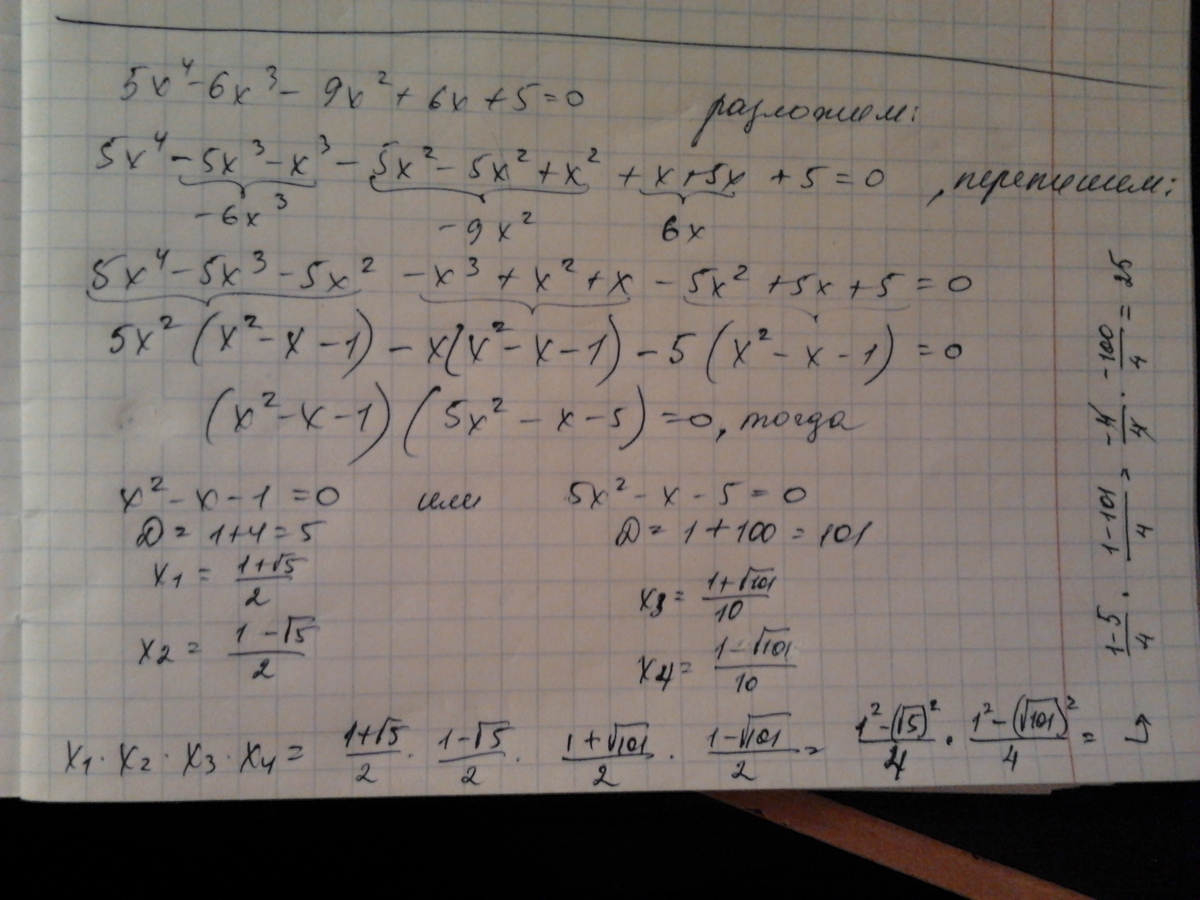 5x⁴ - 6x³ - 9x² + 6x + 5 = 0 разложием:
5x⁴ - 5x³ - x³ - 5x² - 5x² + x² + x + 5x + 5 = 0 , перепишем:
-6x³ -9x² 6x
5x⁴ - 5x³ - 5x² - x³ + x² + x - 5x² + 5x + 5 = 0
5x² (x² - x - 1) - x(x² - x - 1) - 5 (x² - x - 1) = 0
(x² - x - 1) (5x² - x - 5) = 0, тогда
x² - x - 1 = 0 или 5x² - x - 5 = 0
D = 1 + 4 = 5 D = 1 + 100 = 101
x1 = (1+√5)/2 x3 = (1+√101)/10
x2 = (1-√5)/2 x4 = (1-√101)/10
x1 · x2 · x3 · x4 = (1+√5)/2 · (1-√5)/2 · (1+√101)/2 · (1-√101)/2 = (1²-(√5)²)/4 · (1²-(√101)²)/4 =
↳ (1-5)/4 · (1-101)/4 = -4/4 · -100/4 = 25